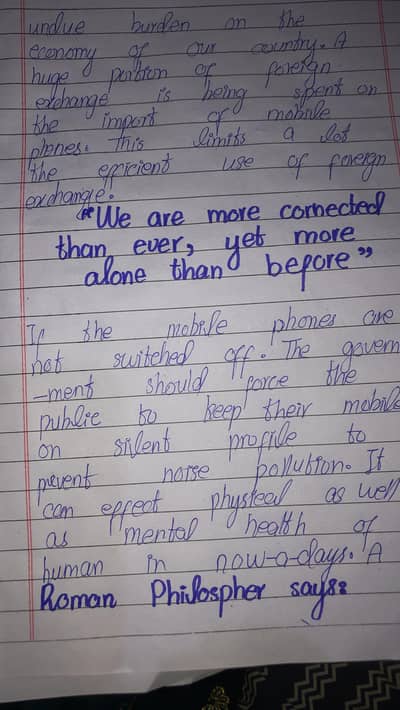 undue burden on the
economy of our country. A
huge portion of foreign
exchange is being spent on
the import of mobile
phones. This limits a lot
the efficient use of foreign
exchange.
"We are more connected
than ever, yet more
alone than before"
If the mobile phones are
not switched off. The govern
-ment should force the
public to keep their mobile
on silent profile to
prevent noise pollution. It
can effect physical as well
as mental health of
human in now-a-days. A
Roman Philospher says::